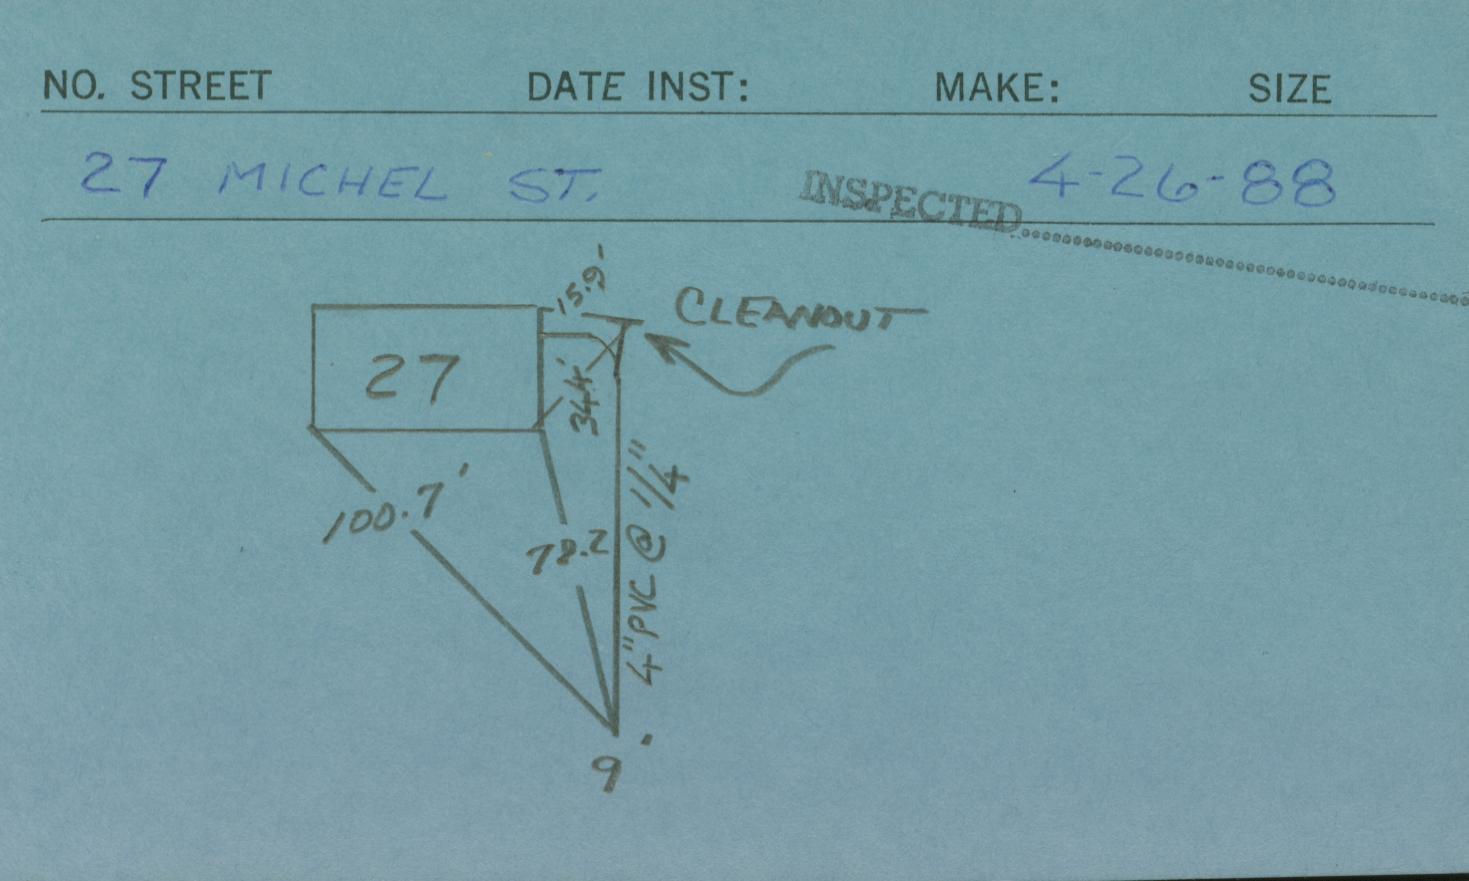 NO. STREET DATE INST: MAKE: SIZE
27 MICHEL ST. INSPECTED 4-26-88
15.9-
CLEANOUT
27
34.4'
100.7'
78.2
4" PVC @ 1/4"
9'